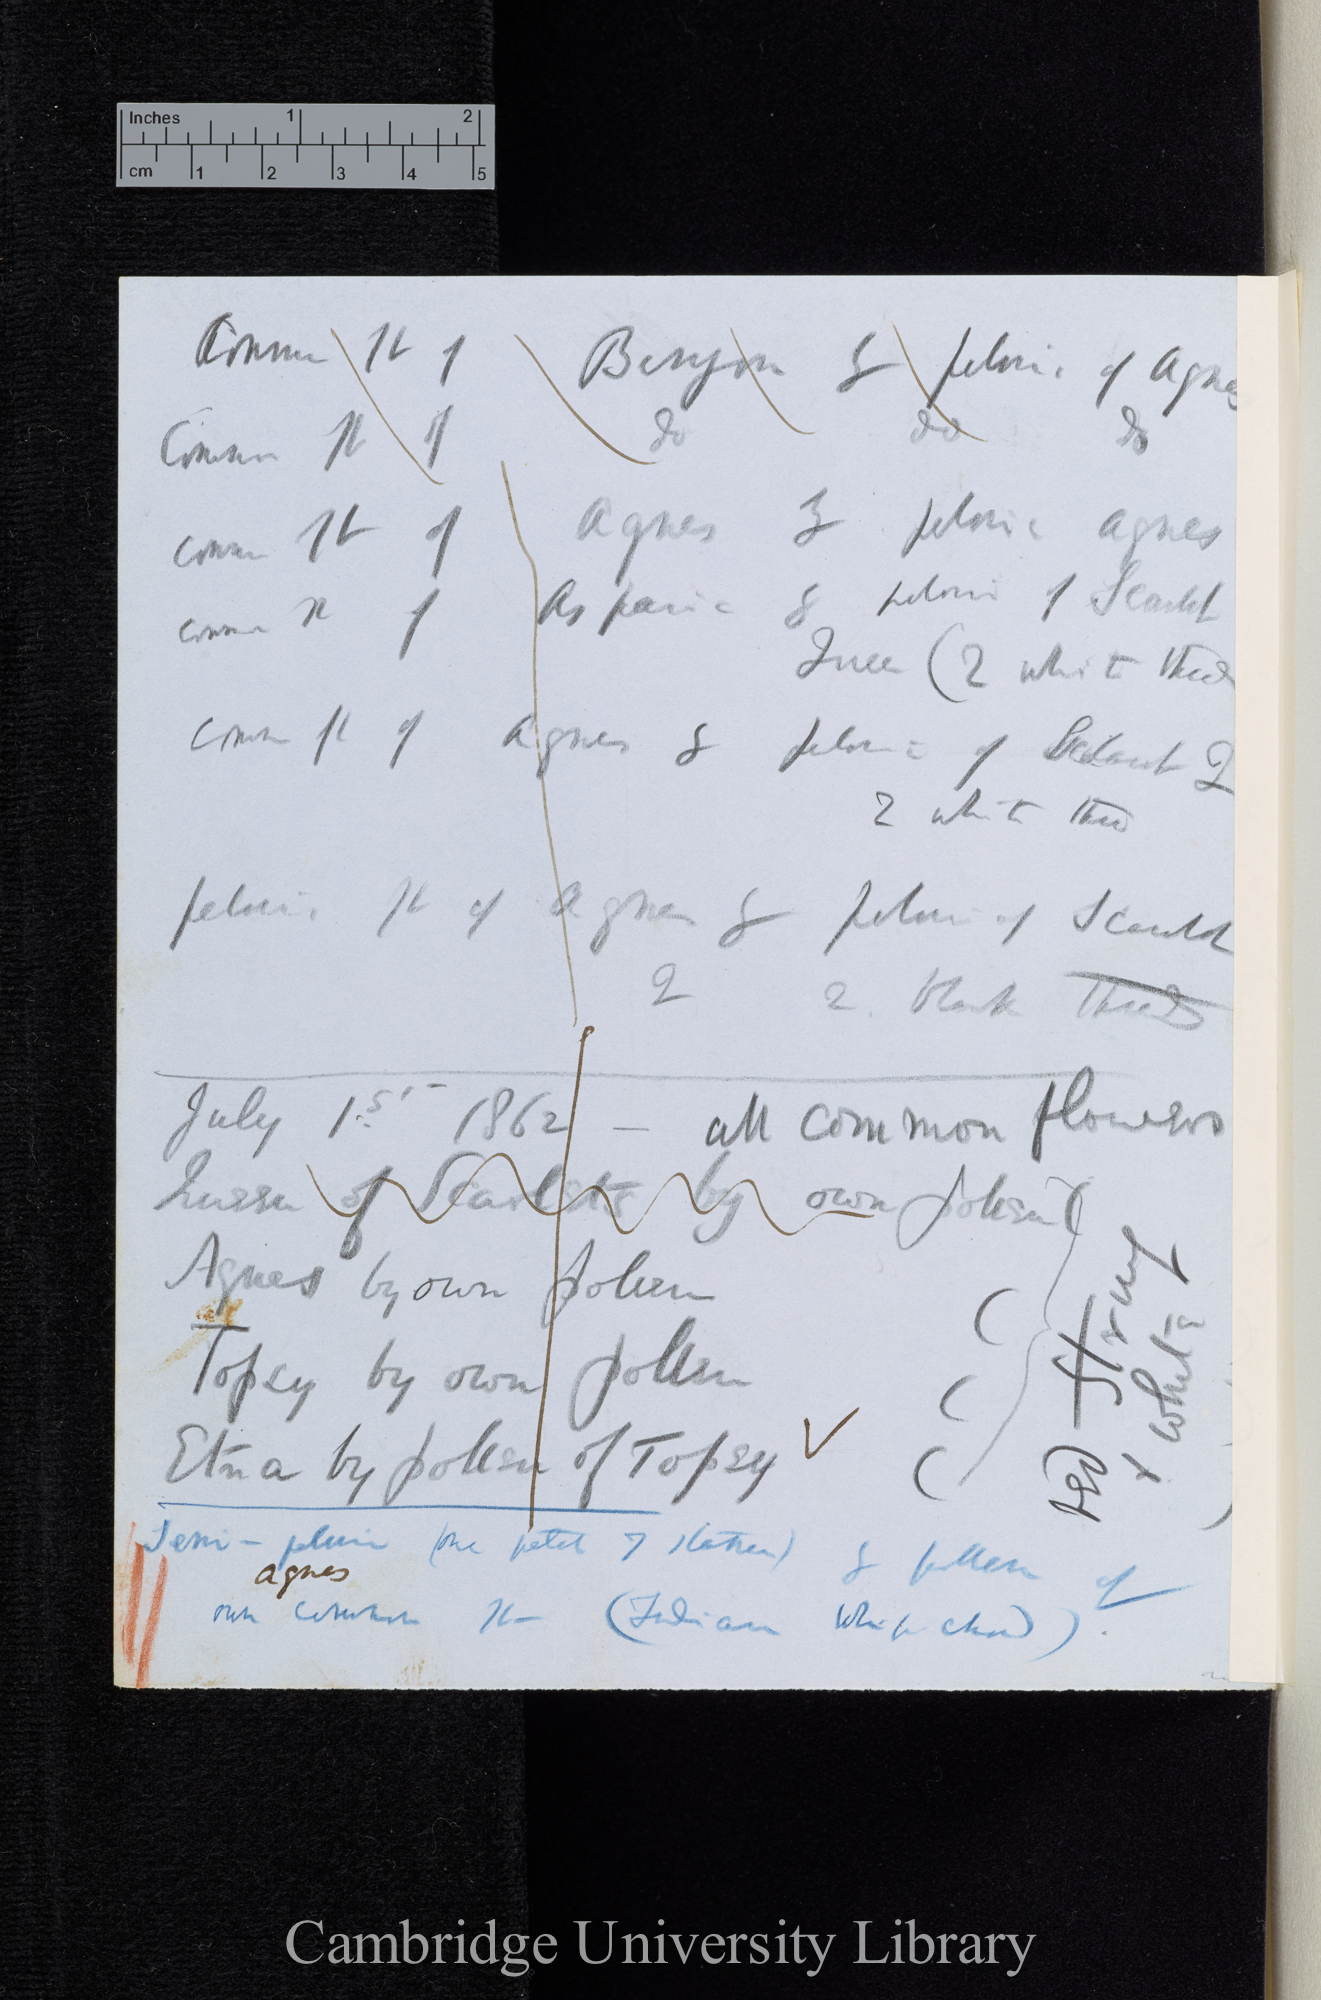 Inches 1 2
cm 1 2 3 4 5
Common st of Benyon & peloric of Agnes
Common st of do do do
Comm st of Agnes & peloric agnes
comm st of Aspasia & peloric of Scarlet
Queen (2 white thread
comm st of Agnes & peloric of Scarlet Q
2 white thread
peloric st of Agnes & peloric of Scarlet
Q 2. black threads
July 1.st 1862 — all common flowers
Queen of Scarlets by own pollen (
Agnes by own pollen (
Topsy by own pollen (
Etna by pollen of Topsy ✓ (
red string
+ white
Semi-peloric (one petal & stamen) & pollen of
agnes
own common st— (Indian whip-chord).
Cambridge University Library